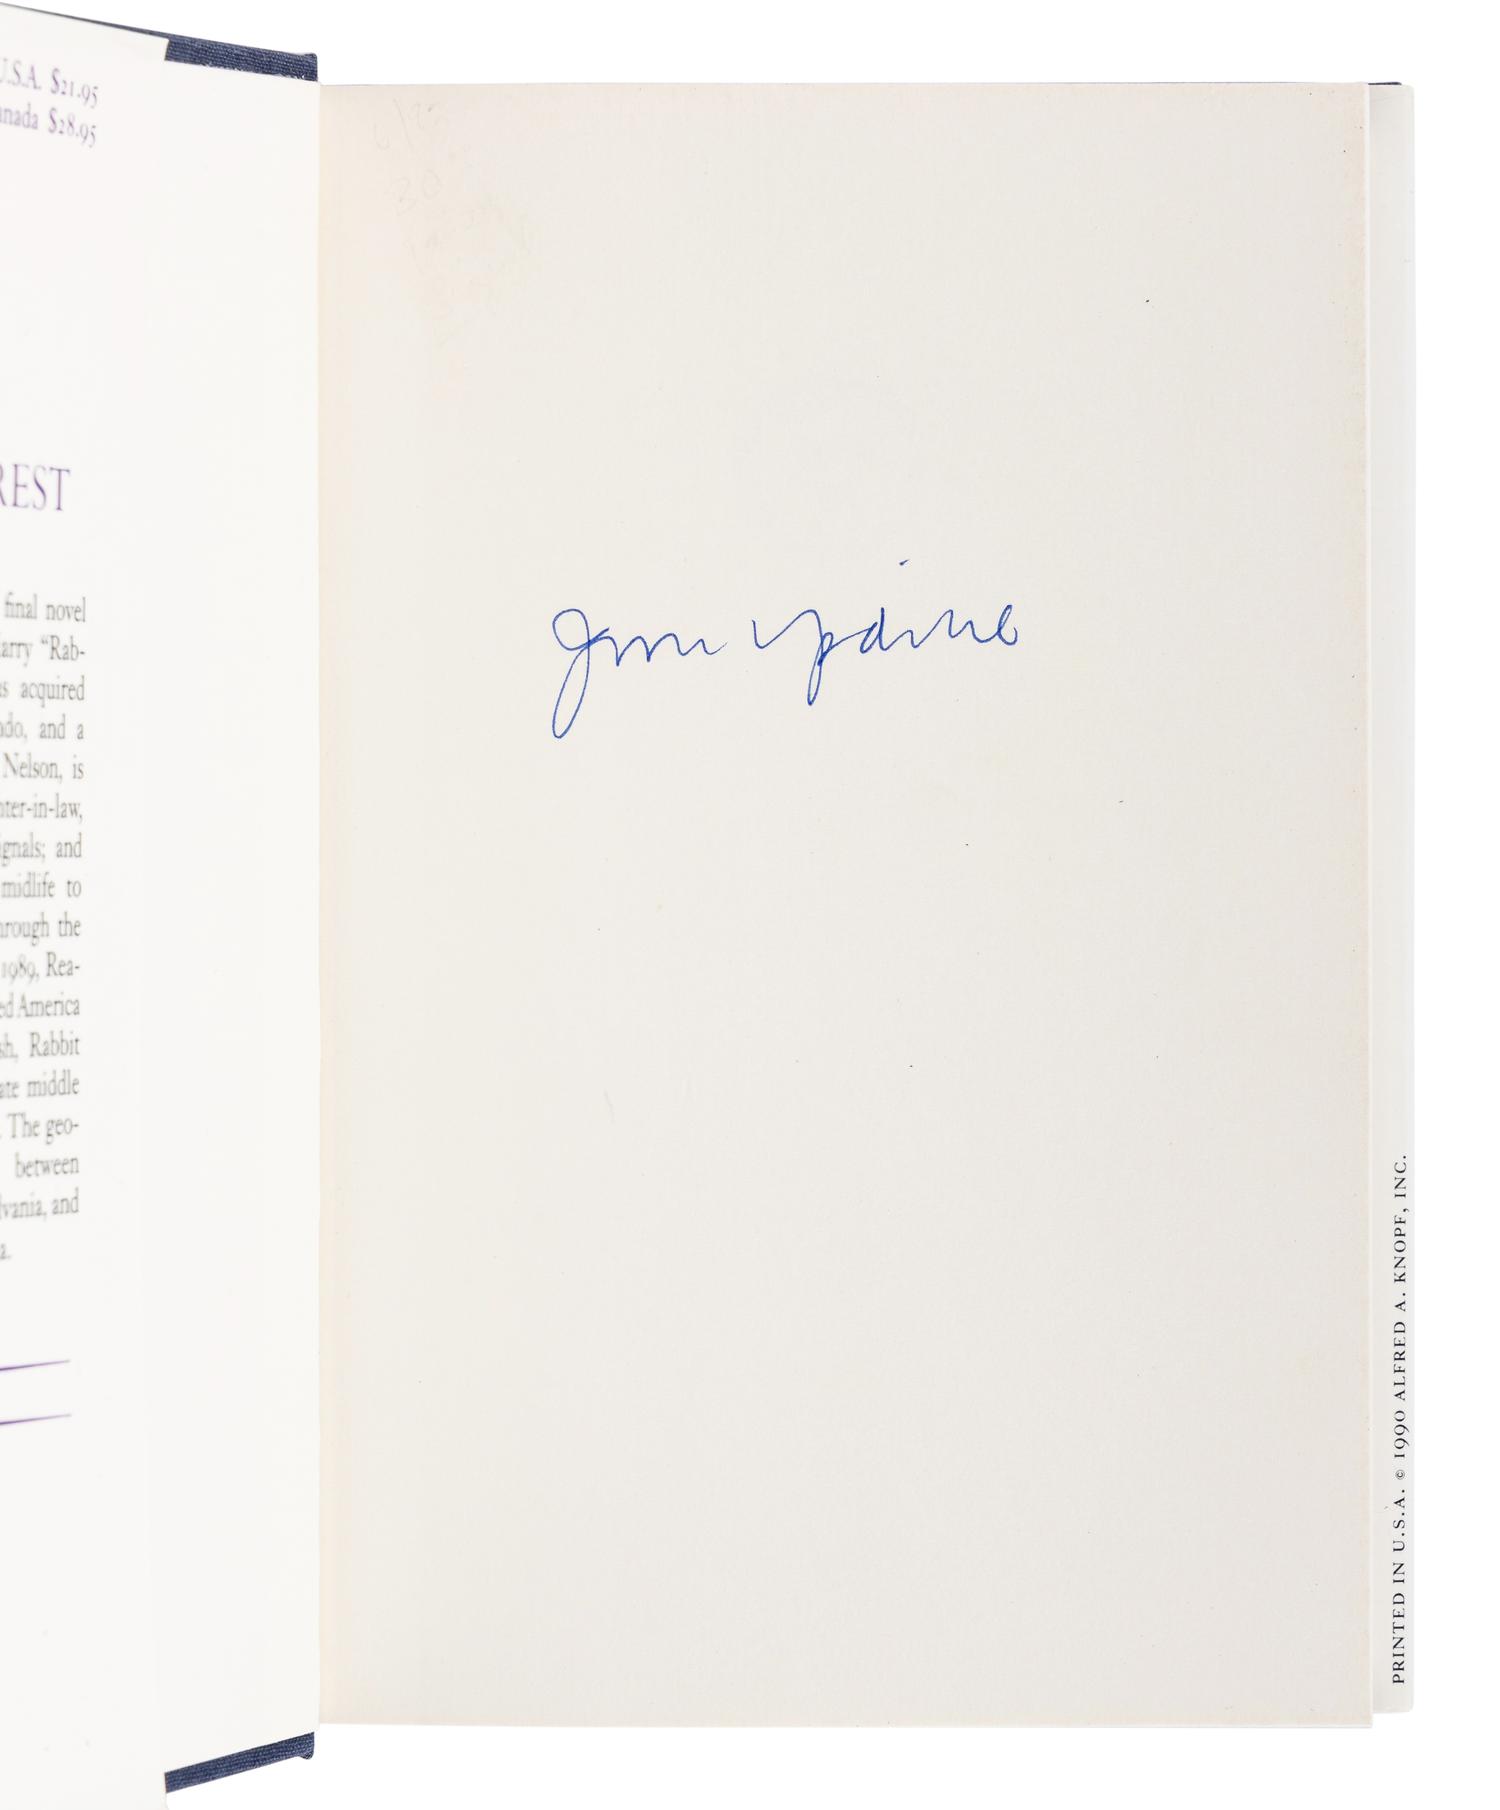 U.S.A. $21.95
Canada $28.95
REST
final novel
Harry “Rab-
acquired
and a
Nelson, is
in-law,
and
midlife to
through the
1989, Rea-
America
Rabbit
middle
The geo-
between
and
John Updike
PRINTED IN U.S.A. © 1990 ALFRED A. KNOPF, INC.